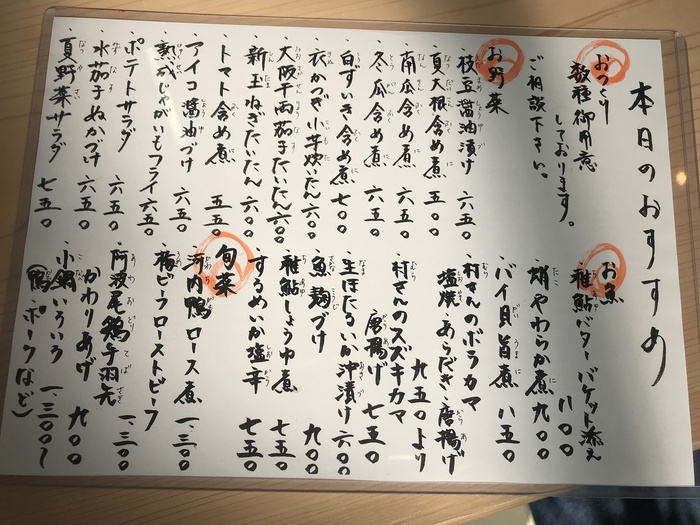 本日のおすすめ
おつくり
数種御用意
しております。
ご相談下さい。
お野菜
枝豆醤油漬け 六五〇
夏大根含め煮 五五〇
南瓜含め煮 六五〇
冬瓜含め煮 六五〇
白ずいき含め煮 七〇〇
衣かつぎ小芋炊いたん 六〇〇
大阪千両茄子たいたん 六〇〇
新玉ねぎたいたん 六〇〇
トマト含め煮 五五〇
アイコ醤油づけ 六五〇
熟成じゃがいもフライ 六五〇
ポテトサラダ 六五〇
水茄子ぬかづけ 六五〇
夏野菜サラダ 七五〇
お魚
稚鮎バターバケット添え
八〇〇
蛸やわらか煮 九〇〇
バイ貝旨煮 八五〇
村さんのボラカマ
塩焼 あらだき 唐揚げ
九五〇より
村さんのスズキカマ
唐揚げ 七五〇
生ほたるいか沖漬け 六〇〇
魚麹づけ 九〇〇
稚鮎しょうゆ煮 七五〇
するめいか塩辛 七五〇
旬菜
河内鴨ロース煮 一、三〇〇
梅ビーフローストビーフ
一、三〇〇
阿波尾鶏手羽先
かわりあげ 九〇〇
小鍋いろいろ 一、三〇〇〜
（鴨、ポークなど）